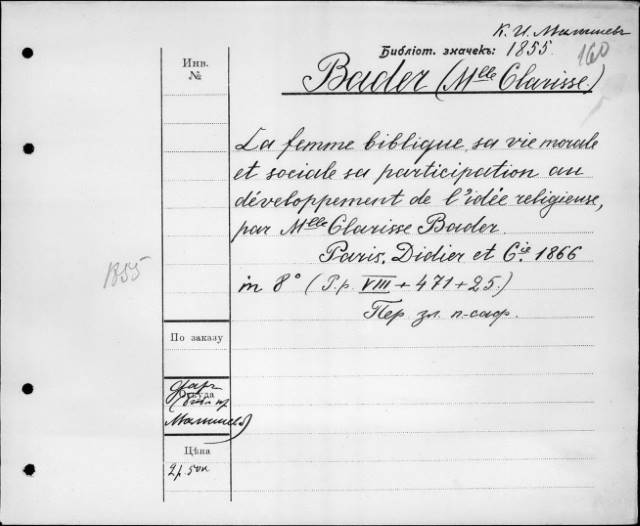 К. И. Малышев
Библіот. значекъ: 1855. 160
Bader (Mlle Clarisse.)
Инв.
№
La femme biblique, sa vie morale
et sociale sa participation au
développement de l'idée religieuse,
par Mlle Clarisse Bader.
Paris, Didier et Cie. 1866
in 8° (P.p. VIII + 471 + 25.)
Пер. зл. п-саф.
1855
По заказу
Откуда
Дар
Малышев
Цѣна
2 р. 50 к